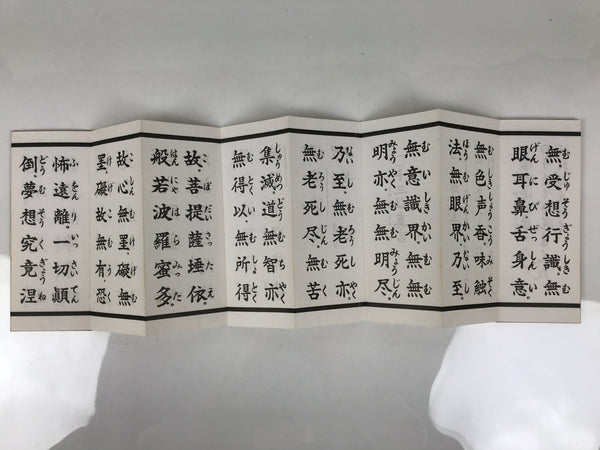 無受想行識無
眼耳鼻舌身意。
無色声香味触
法。無眼界乃至。
無意識界無無
明。亦無無明尽。
乃至。無老死亦
無老死尽。無苦
集滅道無智亦
無得以無所得
故。菩提薩埵依。
般若波羅蜜多。
故心無罣礙無
罣礙故無有恐
怖遠離一切顛
倒。夢想究竟涅